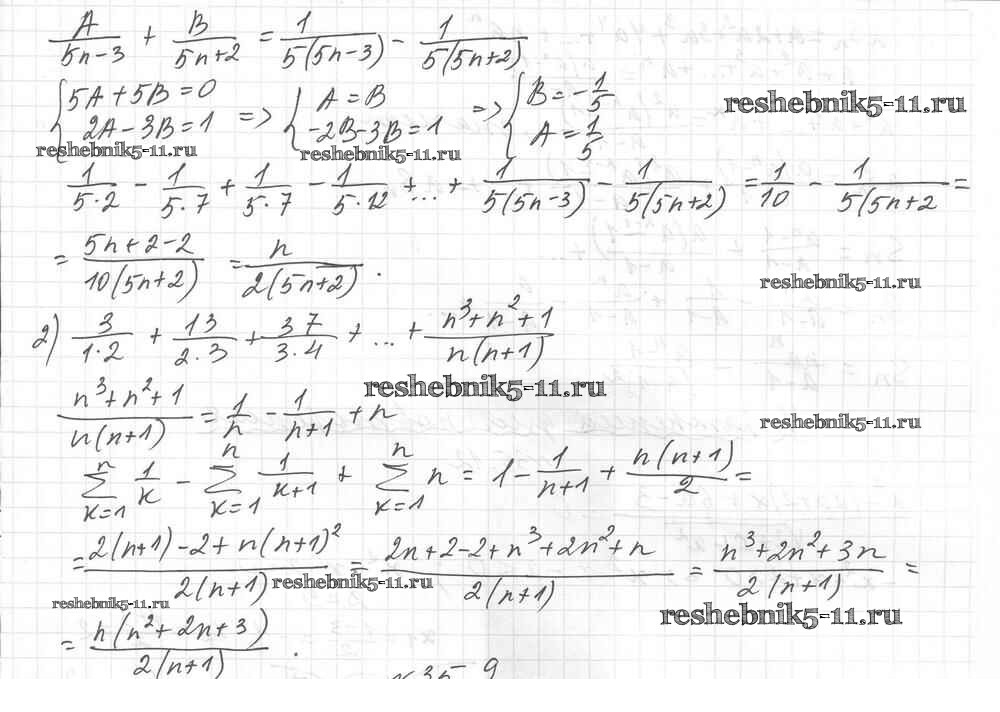 A/(5n-3) + B/(5n+2) = 1/(5(5n-3)) - 1/(5(5n+2))
{5A+5B=0 {A=B {B=-1/5
{2A-3B=1 => {-2B-3B=1 => {A=1/5
reshebnik5-11.ru
reshebnik5-11.ru reshebnik5-11.ru
1/(5·2) - 1/(5·7) + 1/(5·7) - 1/(5·12) + ... + 1/(5(5n-3)) - 1/(5(5n+2)) = 1/10 - 1/(5(5n+2 =
= (5n+2-2)/(10(5n+2)) = n/(2(5n+2)).
reshebnik5-11.ru
2) 3/(1·2) + 13/(2·3) + 37/(3·4) + ... + (n³+n²+1)/(n(n+1))
reshebnik5-11.ru
(n³+n²+1)/(n(n+1)) = 1/n - 1/(n+1) + n
reshebnik5-11.ru
∑_{k=1}^{n} 1/k - ∑_{k=1}^{n} 1/(k+1) + ∑_{k=1}^{n} n = 1 - 1/(n+1) + n(n+1)/2 =
= (2(n+1)-2+n(n+1)²)/(2(n+1)) = (2n+2-2+n³+2n²+n)/(2(n+1)) = (n³+2n²+3n)/(2(n+1)) =
reshebnik5-11.ru
reshebnik5-11.ru reshebnik5-11.ru
= n(n²+2n+3)/(2(n+1)).